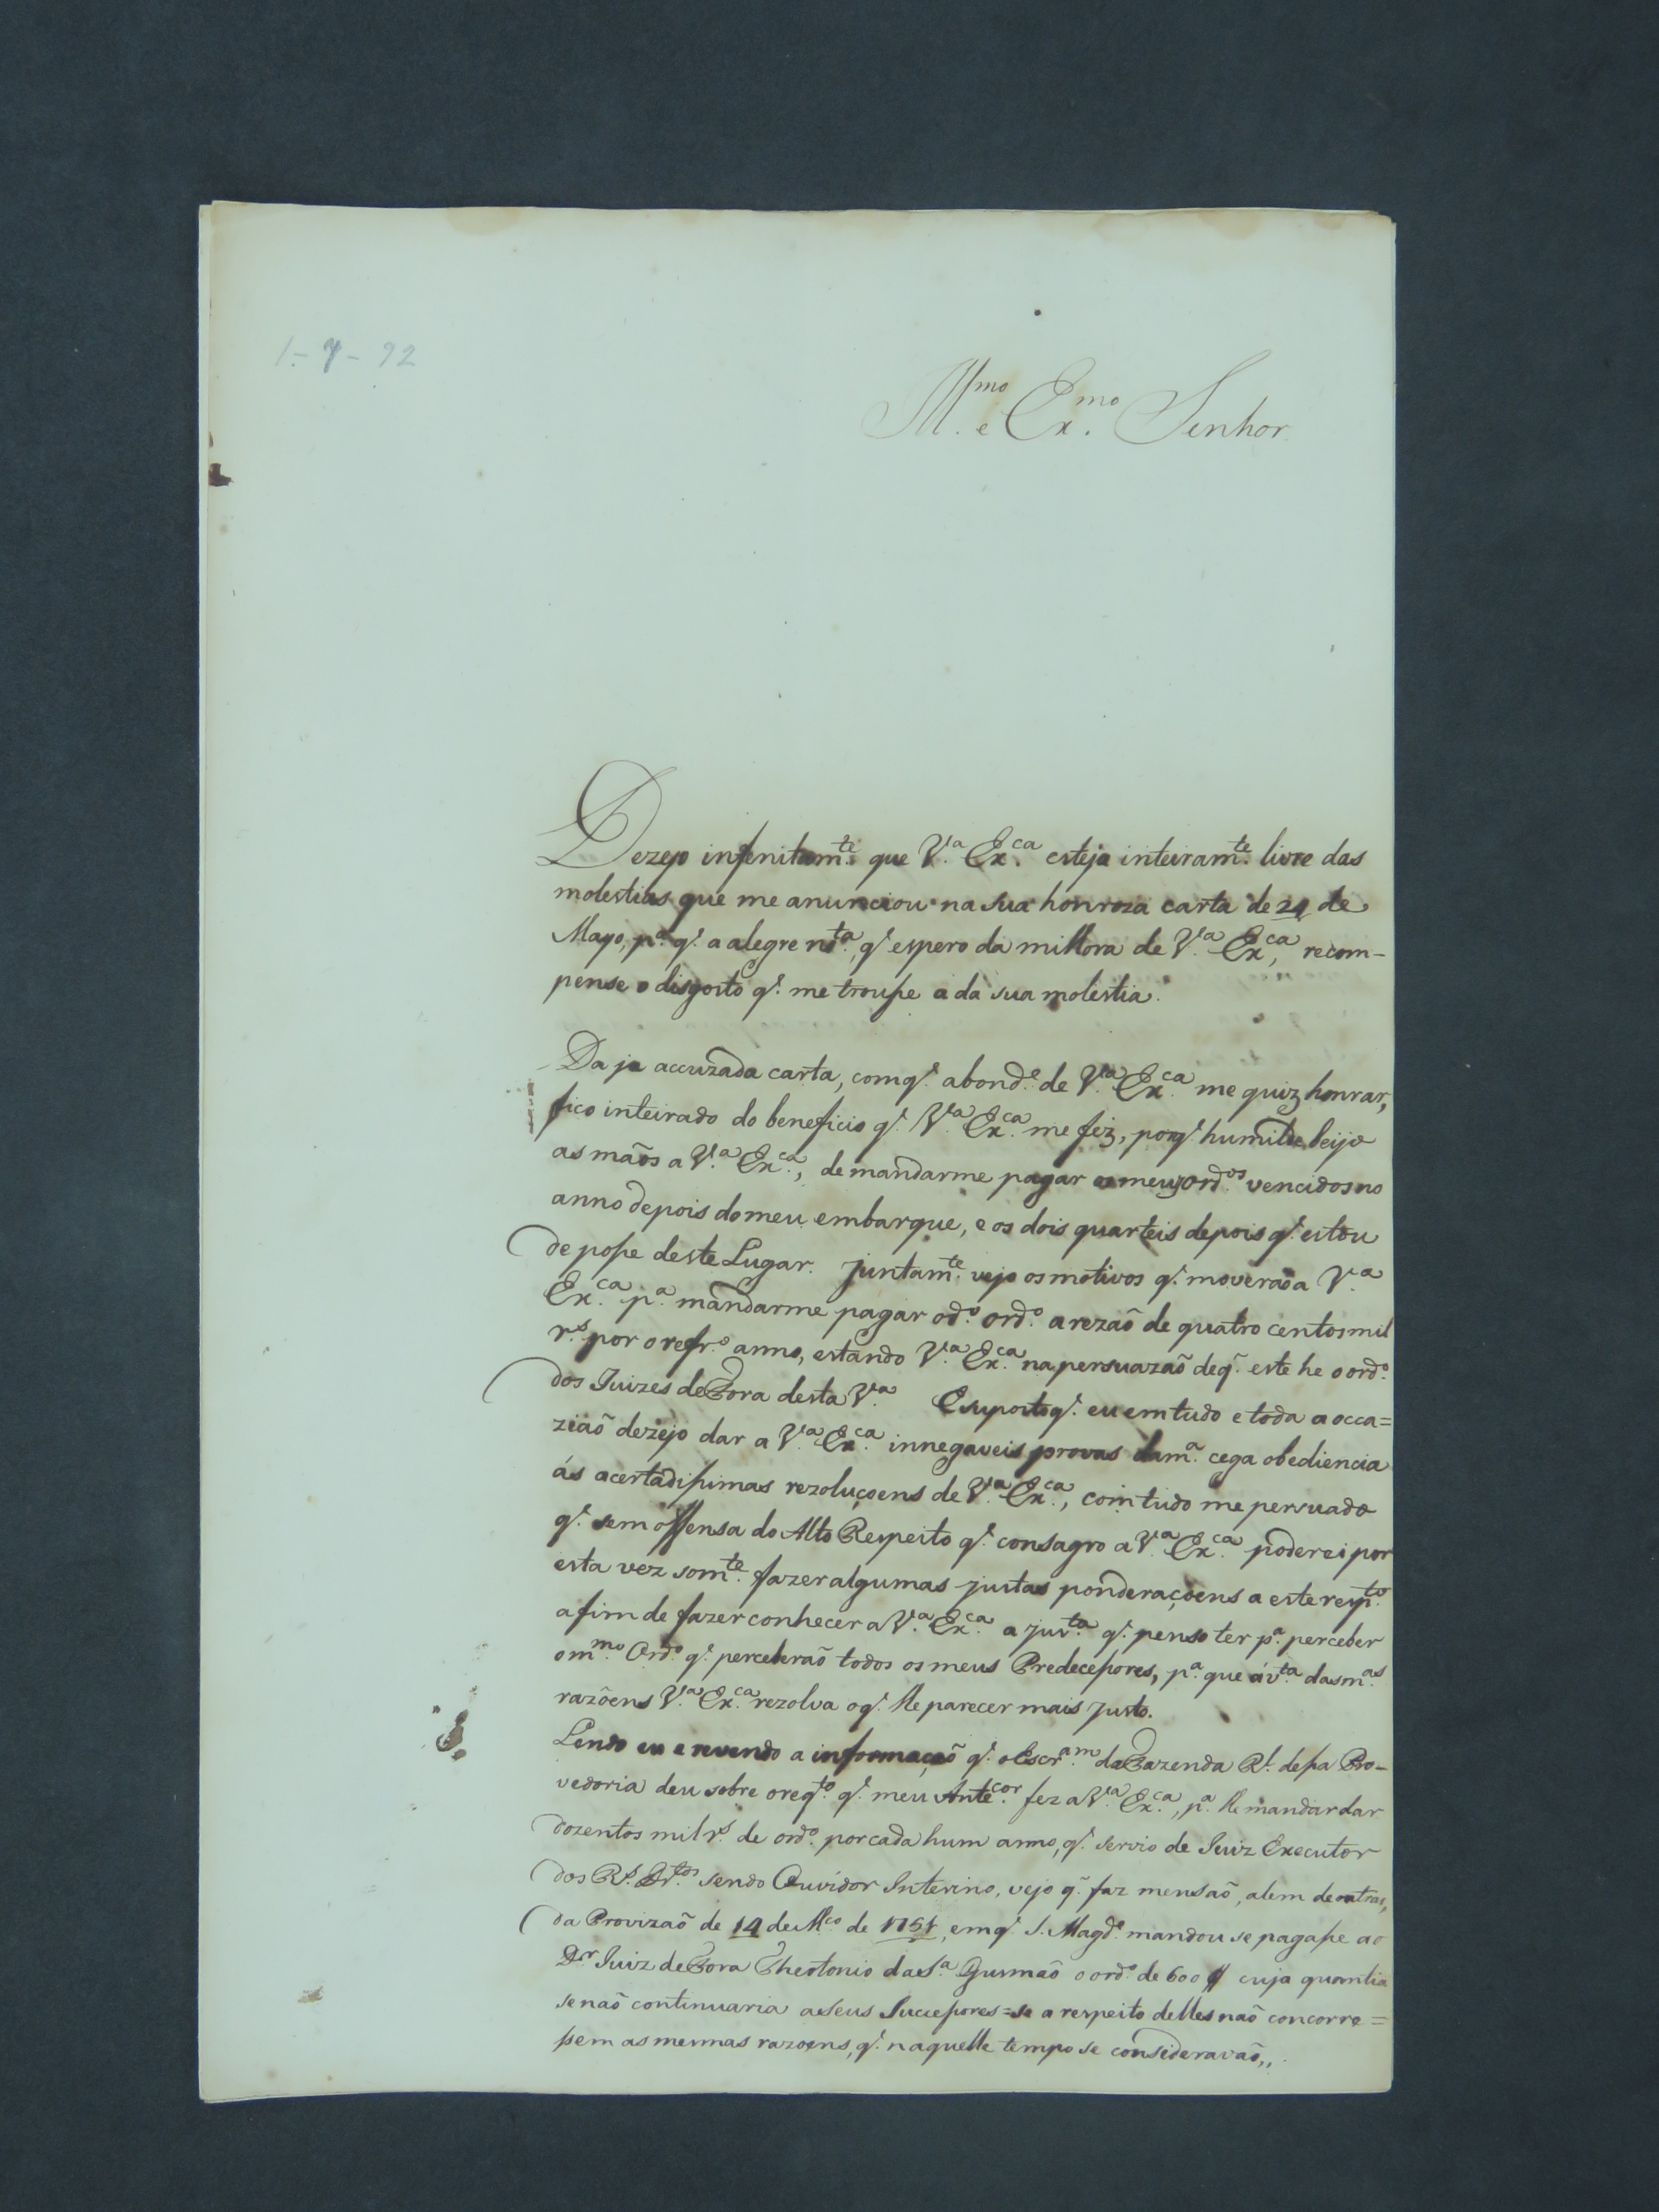 1-7-92
Ill.mo e Ex.mo Senhor
Dezejo infenitam.te que V.a Ex.ca esteja inteiram.te livre das
molestias que me anunciou na sua honroza carta de 24 de
Mayo, p.a q.' a alegre not.a q.' espero da milhora de V.a Ex.ca, recom-
pense o disgosto q.' me trousse a da sua molestia.
Da ja accuzada carta, com q.' a bond.e de V.a Ex.ca me quiz honrar,
fico inteirado do beneficio q.' V.a Ex.ca me fez, porq.' humilde beijo
as mãos a V.a Ex.ca, de mandarme pagar os meus ord.os vencidos no
anno depois do meu embarque, e os dois quarteis depois q.' estou
de posse deste Lugar. Juntam.te vejo os motivos q.' moverão a V.a
Ex.ca p.a mandarme pagar o d.o ord.o a rezão de quatro centos mil
r.s por o refr.o anno, estando V.a Ex.ca na persuazão de q.' este he o ord.o
dos Juizes de Fora desta V.a E suposto q.' eu em tudo e toda a occa=
zião dezejo dar a V.a Ex.ca innegaveis provas da m.a cega obediencia
ás acertadissimas rezoluçoens de V.a Ex.ca, com tudo me persuado
q.' sem offensa do Alto Respeito q.' consagro a V.a Ex.ca poderei por
esta vez som.te fazer algumas justas ponderaçoens a este resp.to
a fim de fazer conhecer a V.a Ex.ca a just.a q.' penso ter p.a perceber
o m.mo Ord.o q.' perceberão todos os meus Predecessores, p.a que á v.ta das m.as
razõens V.a Ex.ca rezolva o q.' lhe parecer mais justo.
Lendo eu e revendo a informação q.' o Escr.am da Fazenda R.l dessa Pro-
vedoria deu sobre o req.to q.' meu Antec.or fez a V.a Ex.ca, p.a lhe mandar dar
dozentos mil r.s de ord.o por cada hum anno, q.' servio de Juiz Executor
dos R.s Dr.tos sendo Ouvidor Interino, vejo q.' faz mensão, alem de outras,
da Provizão de 14 de M.ço de 1751, em q.' S. Magd.e mandou se pagasse ao
D.r Juiz de Fora Theotonio da S.a Gusmão o ord.o de 600$ cuja quantia
se não continuaria a seus Successores = se a respeito delles não concorre=
ssem as mesmas razoens, q.' naquelle tempo se consideravão,,.